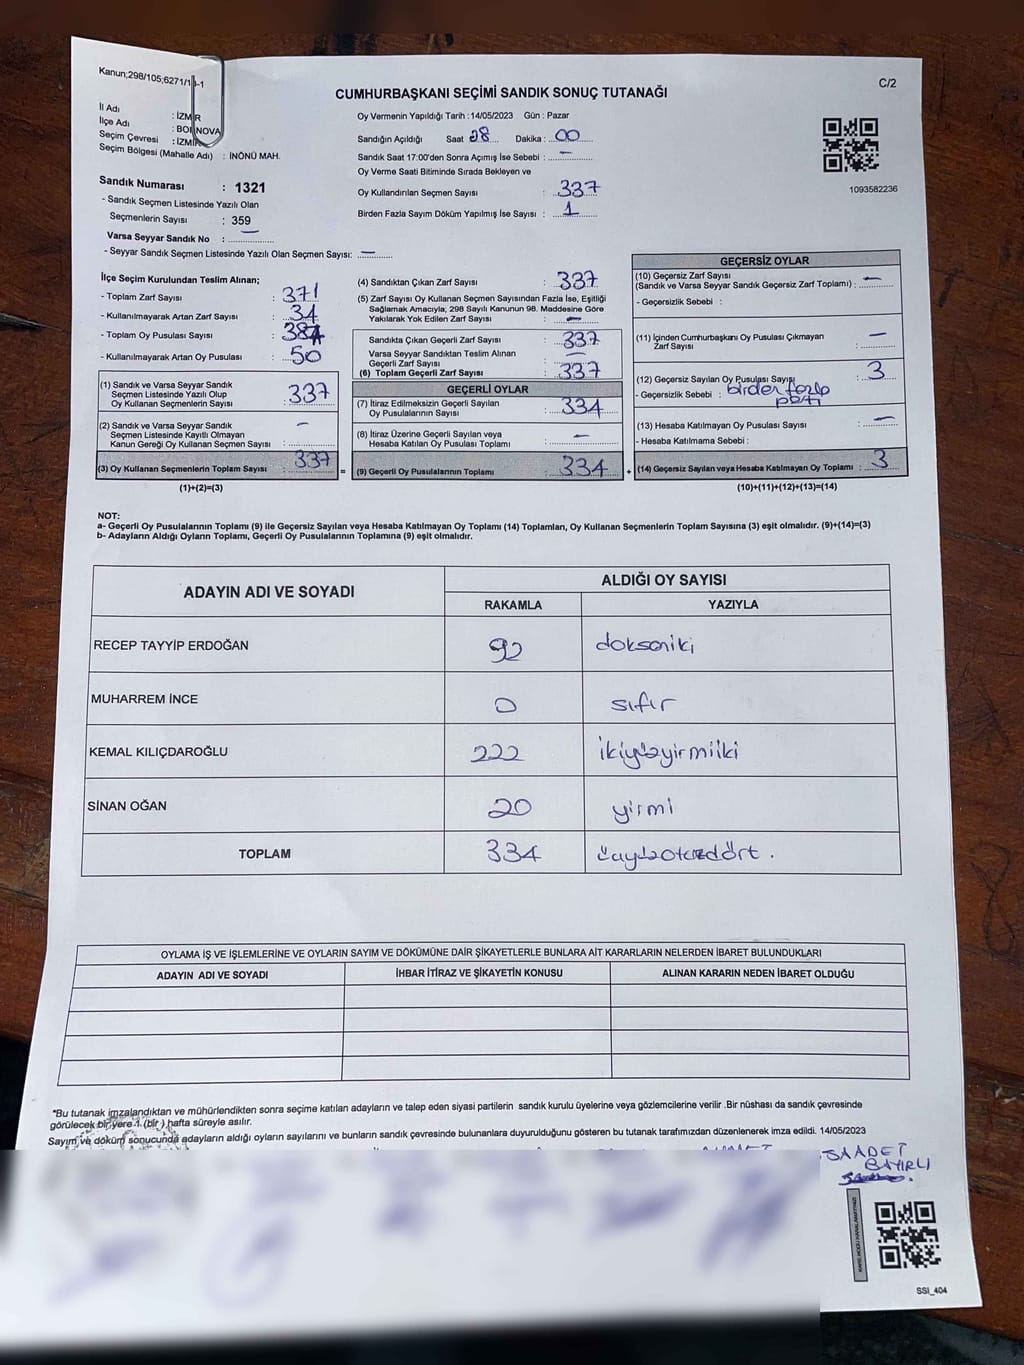 Kanun;298/105;6271/1
C/2
CUMHURBAŞKANI SEÇİMİ SANDIK SONUÇ TUTANAĞI
İl Adı : İZMİR
İlçe Adı : BORNOVA
Seçim Çevresi : İZMİR
Seçim Bölgesi (Mahalle Adı) : İNÖNÜ MAH.
Oy Vermenin Yapıldığı Tarih :14/05/2023 Gün : Pazar
Sandığın Açıldığı Saat 08 Dakika : 00
Sandık Saat 17:00'den Sonra Açımış İse Sebebi : —
Oy Verme Saati Bitiminde Sırada Bekleyen ve
Oy Kullandırılan Seçmen Sayısı : 337
Birden Fazla Sayım Döküm Yapılmış İse Sayısı : 1
1093582236
Sandık Numarası : 1321
- Sandık Seçmen Listesinde Yazılı Olan
Seçmenlerin Sayısı : 359
Varsa Seyyar Sandık No : —
- Seyyar Sandık Seçmen Listesinde Yazılı Olan Seçmen Sayısı: —
İlçe Seçim Kurulundan Teslim Alınan;
- Toplam Zarf Sayısı : 371
- Kullanılmayarak Artan Zarf Sayısı : 34
- Toplam Oy Pusulası Sayısı :
- Kullanılmayarak Artan Oy Pusulası : 50
(1) Sandık ve Varsa Seyyar Sandık
Seçmen Listesinde Yazılı Olup
Oy Kullanan Seçmenlerin Sayısı : 337
(2) Sandık ve Varsa Seyyar Sandık
Seçmen Listesinde Kayıtlı Olmayan
Kanun Gereği Oy Kullanan Seçmen Sayısı : —
(3) Oy Kullanan Seçmenlerin Toplam Sayısı : 337
(1)+(2)=(3)
=
(4) Sandıktan Çıkan Zarf Sayısı : 337
(5) Zarf Sayısı Oy Kullanan Seçmen Sayısından Fazla İse, Eşitliği
Sağlamak Amacıyla; 298 Sayılı Kanunun 98. Maddesine Göre
Yakılarak Yok Edilen Zarf Sayısı : —
Sandıkta Çıkan Geçerli Zarf Sayısı : 337
Varsa Seyyar Sandıktan Teslim Alınan
Geçerli Zarf Sayısı : —
(6) Toplam Geçerli Zarf Sayısı : 337
GEÇERLİ OYLAR
(7) İtiraz Edilmeksizin Geçerli Sayılan
Oy Pusulalarının Sayısı : 334
(8) İtiraz Üzerine Geçerli Sayılan veya
Hesaba Katılan Oy Pusulası Toplamı : —
(9) Geçerli Oy Pusulalarının Toplamı : 334
+
GEÇERSİZ OYLAR
(10) Geçersiz Zarf Sayısı
(Sandık ve Varsa Seyyar Sandık Geçersiz Zarf Toplamı) : —
- Geçersizlik Sebebi :
(11) İçinden Cumhurbaşkanı Oy Pusulası Çıkmayan
Zarf Sayısı : —
(12) Geçersiz Sayılan Oy Pusulası Sayısı : 3
- Geçersizlik Sebebi : birden fazla
(13) Hesaba Katılmayan Oy Pusulası Sayısı : —
- Hesaba Katılmama Sebebi :
(14) Geçersiz Sayılan veya Hesaba Katılmayan Oy Toplamı : 3
(10)+(11)+(12)+(13)=(14)
NOT:
a- Geçerli Oy Pusulalarının Toplamı (9) ile Geçersiz Sayılan veya Hesaba Katılmayan Oy Toplamı (14) Toplamları, Oy Kullanan Seçmenlerin Toplam Sayısına (3) eşit olmalıdır. (9)+(14)=(3)
b- Adayların Aldığı Oyların Toplamı, Geçerli Oy Pusulalarının Toplamına (9) eşit olmalıdır.
ADAYIN ADI VE SOYADI
ALDIĞI OY SAYISI
RAKAMLA YAZIYLA
RECEP TAYYİP ERDOĞAN 92 doksaniki
MUHARREM İNCE 0 sıfır
KEMAL KILIÇDAROĞLU 222 ikiyüzyirmiiki
SİNAN OĞAN 20 yirmi
TOPLAM 334 üçyüzotuzdört.
OYLAMA İŞ VE İŞLEMLERİNE VE OYLARIN SAYIM VE DÖKÜMÜNE DAİR ŞİKAYETLERLE BUNLARA AİT KARARLARIN NELERDEN İBARET BULUNDUKLARI
ADAYIN ADI VE SOYADI İHBAR İTİRAZ VE ŞİKAYETİN KONUSU ALINAN KARARIN NEDEN İBARET OLDUĞU
*Bu tutanak imzalandıktan ve mühürlendikten sonra seçime katılan adayların ve talep eden siyasi partilerin sandık kurulu üyelerine veya gözlemcilerine verilir .Bir nüshası da sandık çevresinde
görülecek bir yere 1 (bir ) hafta süreyle asılır.
Sayım ve döküm sonucunda adayların aldığı oyların sayılarını ve bunların sandık çevresinde bulunanlara duyurulduğunu gösteren bu tutanak tarafımızdan düzenlenerek imza edildi. 14/05/2023
SAADET
BAYIRLI
SSI_404